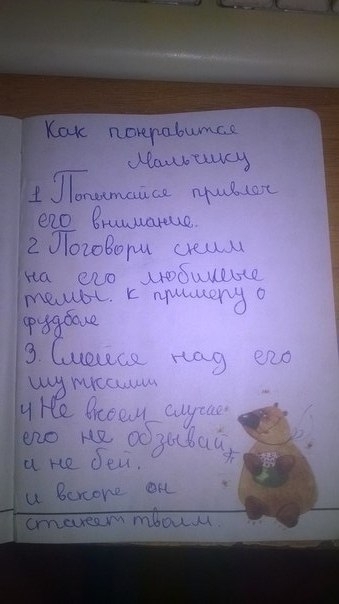 Как понравится
мальчику
1 Попытайся привлеч
его внимание.
2 Поговори сним
на его любимые
темы. к примеру о
фудболе
3. Смейся над его
шутками
4 Не вкоем случае
его не обзывай
и не бей.
и вскоре он
станет твоим.